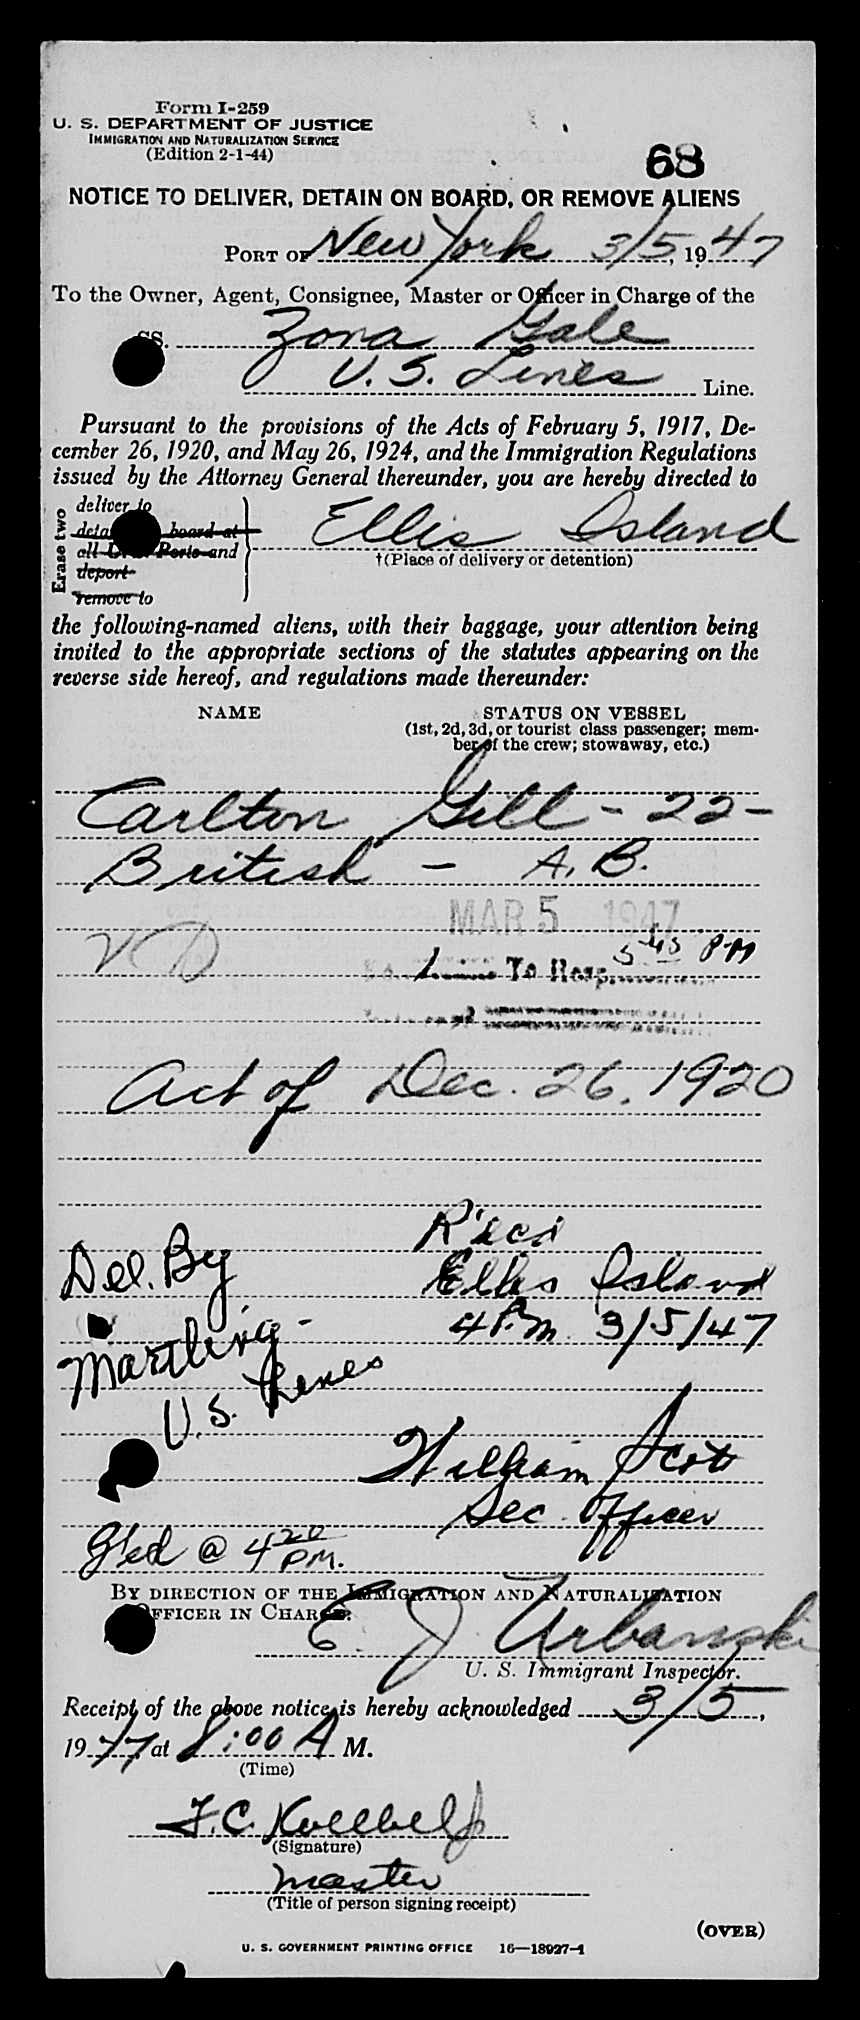 Form I-259
U. S. DEPARTMENT OF JUSTICE
IMMIGRATION AND NATURALIZATION SERVICE
(Edition 2-1-44)
68
NOTICE TO DELIVER, DETAIN ON BOARD, OR REMOVE ALIENS
PORT OF New York 3/5, 1947
To the Owner, Agent, Consignee, Master or Officer in Charge of the
SS. Zona Gale
U. S. Lines Line.
Pursuant to the provisions of the Acts of February 5, 1917, De-
cember 26, 1920, and May 26, 1924, and the Immigration Regulations
issued by the Attorney General thereunder, you are hereby directed to
Erase two
deliver to
board at
all Ports and
deport
remove to
Ellis Island
†(Place of delivery or detention)
the following-named aliens, with their baggage, your attention being
invited to the appropriate sections of the statutes appearing on the
reverse side hereof, and regulations made thereunder:
NAME STATUS ON VESSEL
(1st, 2d, 3d, or tourist class passenger; mem-
ber of the crew; stowaway, etc.)
Carlton Gill - 22 -
British - A. B.
MAR 5 1947
V D
5 45 PM
1 To Hosp.
Act of Dec. 26, 1920
R'ecd
Del. By Ellis Island
4 P.m. 3/5/47
Martling -
U. S. Lines
William Scott
Sec. Officer
G'ed @ 4 20 PM.
BY DIRECTION OF THE IMMIGRATION AND NATURALIZATION
OFFICER IN CHARGE:
E. J. Urbanski
U. S. Immigrant Inspector.
Receipt of the above notice is hereby acknowledged 3/5,
1947, at 8:00 A M.
(Time)
(Signature)
Master
(Title of person signing receipt)
(OVER)
U. S. GOVERNMENT PRINTING OFFICE 16—18927-1